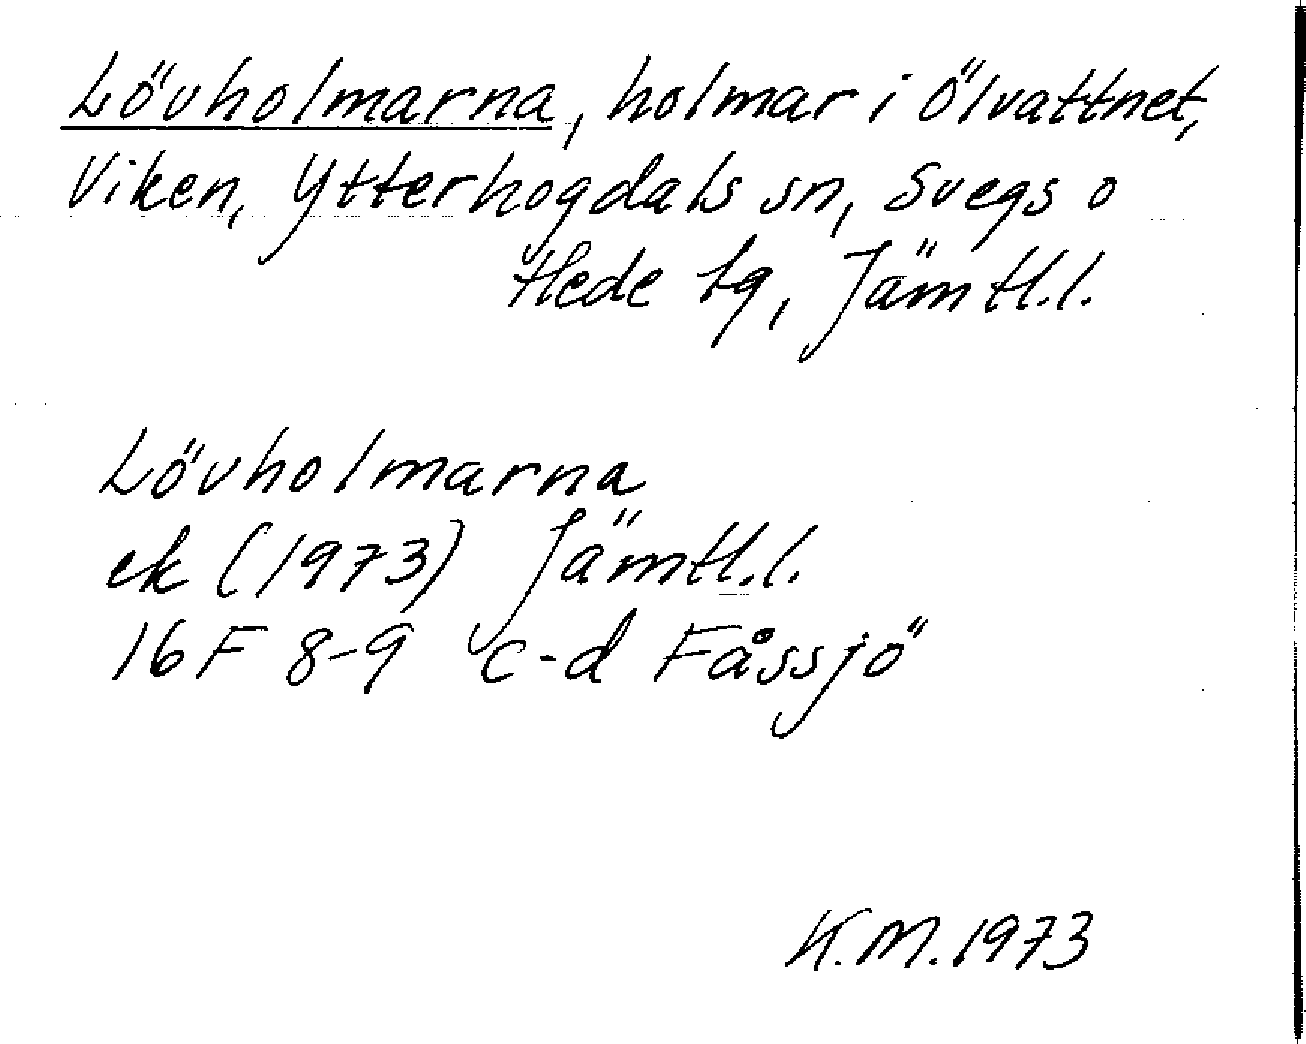 Lövholmarna, holmar i Ölvattnet,
Viken, Ytterhogdals sn, Svegs o
Hede tg, Jämtl.l.
Lövholmarna
ek (1973) Jämtl.l.
16F 8-9 c-d Fåssjö
K.M. 1973